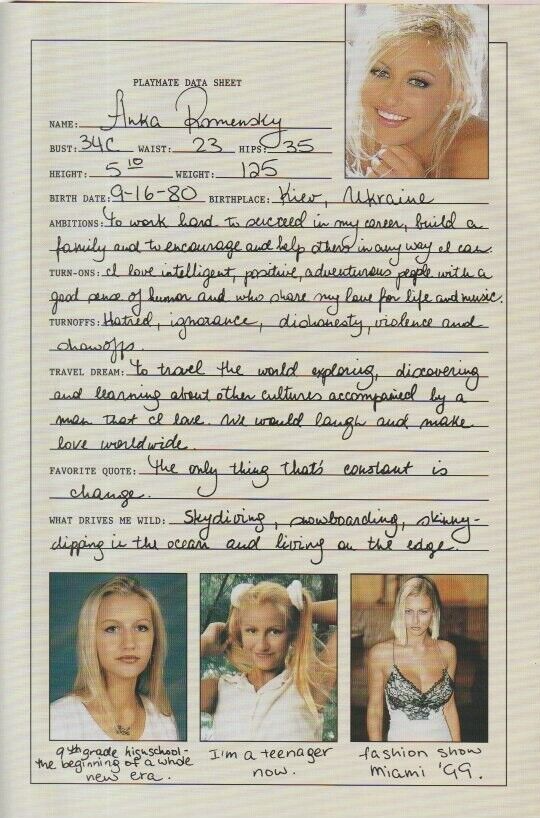 PLAYMATE DATA SHEET
NAME: Anka Romensky
BUST: 34C WAIST: 23 HIPS: 35
HEIGHT: 5 10 WEIGHT: 125
BIRTH DATE: 9-16-80 BIRTHPLACE: Kiev, Ukraine
AMBITIONS: To work hard to succeed in my career, build a
family and to encourage and help others in any way I can.
TURN-ONS: I love intelligent, positive, adventurous people with a
good sense of humor and who share my love for life and music.
TURNOFFS: Hatred, ignorance, dishonesty, violence and
showoffs.
TRAVEL DREAM: To travel the world exploring, discovering
and learning about other cultures accompanied by a
man that I love. We would laugh and make
love worldwide.
FAVORITE QUOTE: The only thing that's constant is
change.
WHAT DRIVES ME WILD: Skydiving, snowboarding, skinny-
dipping in the ocean and living on the edge.
9th grade highschool-
the beginning of a whole
new era.
I'm a teenager
now.
fashion show
Miami '99.